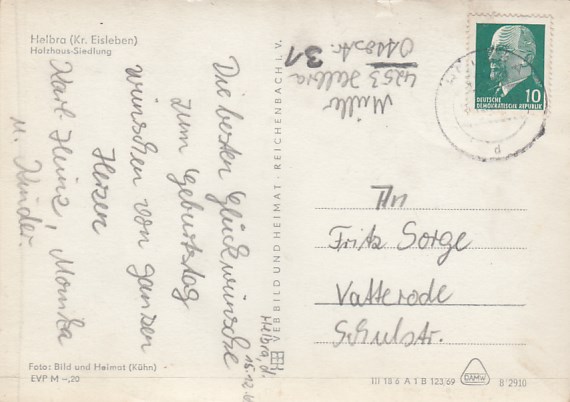 Helbra (Kr. Eisleben)
Holzhaus-Siedlung
Helbra, d.
15.12.
Die besten Glückwünsche
zum Geburtstag
wünschen von ganzen
Herzen
Karl Heinz, Monika
u. Kinder.
Foto: Bild und Heimat (Kühn)
EVP M –,20
VEB BILD UND HEIMAT · REICHENBACH I. V.
Müller
4253 Helbra
Ottostr. 31
DEUTSCHE
DEMOKRATISCHE REPUBLIK
10
An
Fritz Sorge
Vatterode
Schulstr.
III 18 6 A 1 B 123/69
DAMW
B 2910